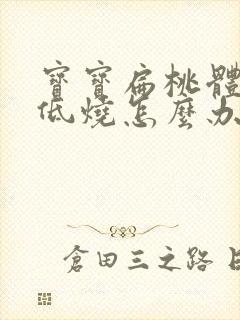 寶寶扁桃體
低燒怎麼办
倉田三之路